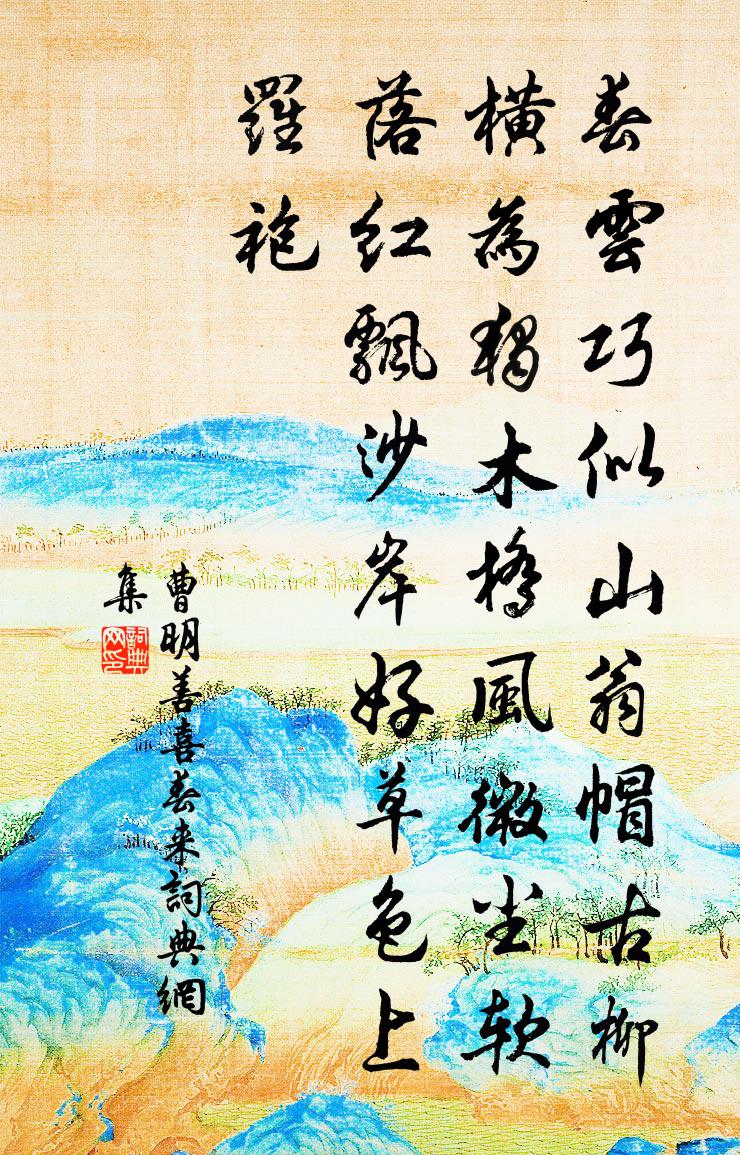 春雲巧似山翁帽古柳
橫為獨木橋風微塵軟
落紅飄沙岸好草色上
羅袍
曹明善喜春来詞典網
集
詞典
网印